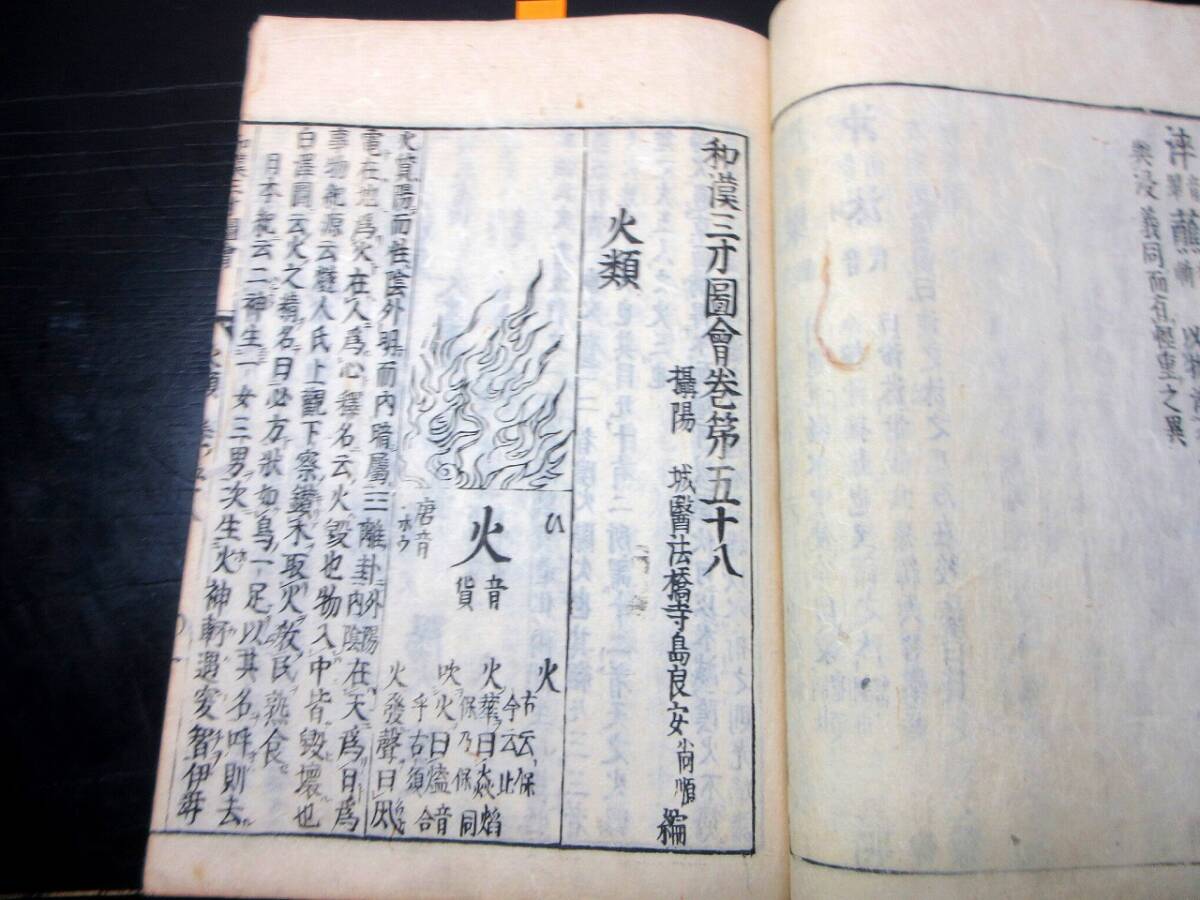 和漢三才圖會卷第五十八
攝陽 城醫法橋寺島良安尚順編
火類
ひ
火
音
貨
唐音
ホウ
火 古云保
今云比
火華曰焱焰
保乃保同
吹火曰熻音
乎古須合
火發聲曰
火質陽而性陰外明而內暗屬三離卦外陽內陰在天爲日爲
電在地爲火在人爲心釋名云火毀也物入中皆毀壞也
事物紀源云燧人氏上觀下察鑽木取火敎民熟食
白澤圖云火之精名曰必方狀如鳥一足以其名呼則去
日本紀云二神生一女三男次生火神軻遇突智伊弉
蘸
與浸義同而有輕重之異